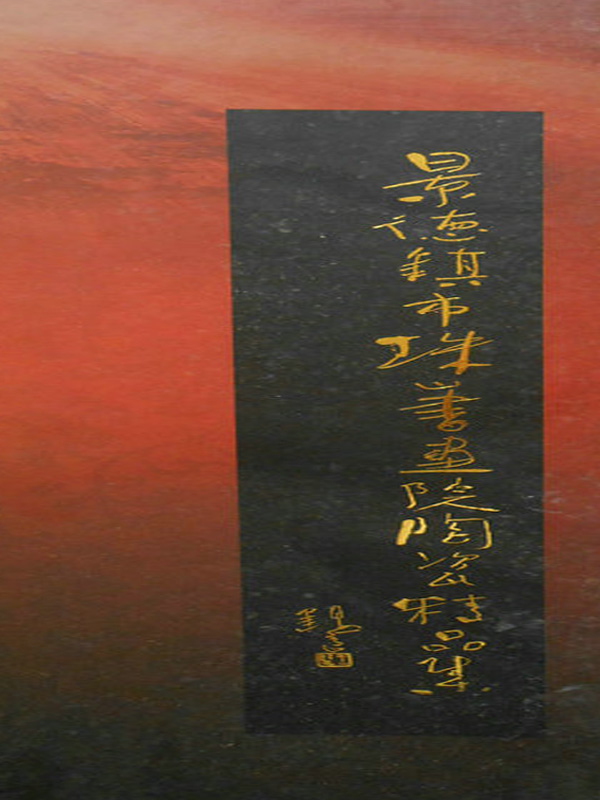 景德镇市珠山書画院陶瓷精品集